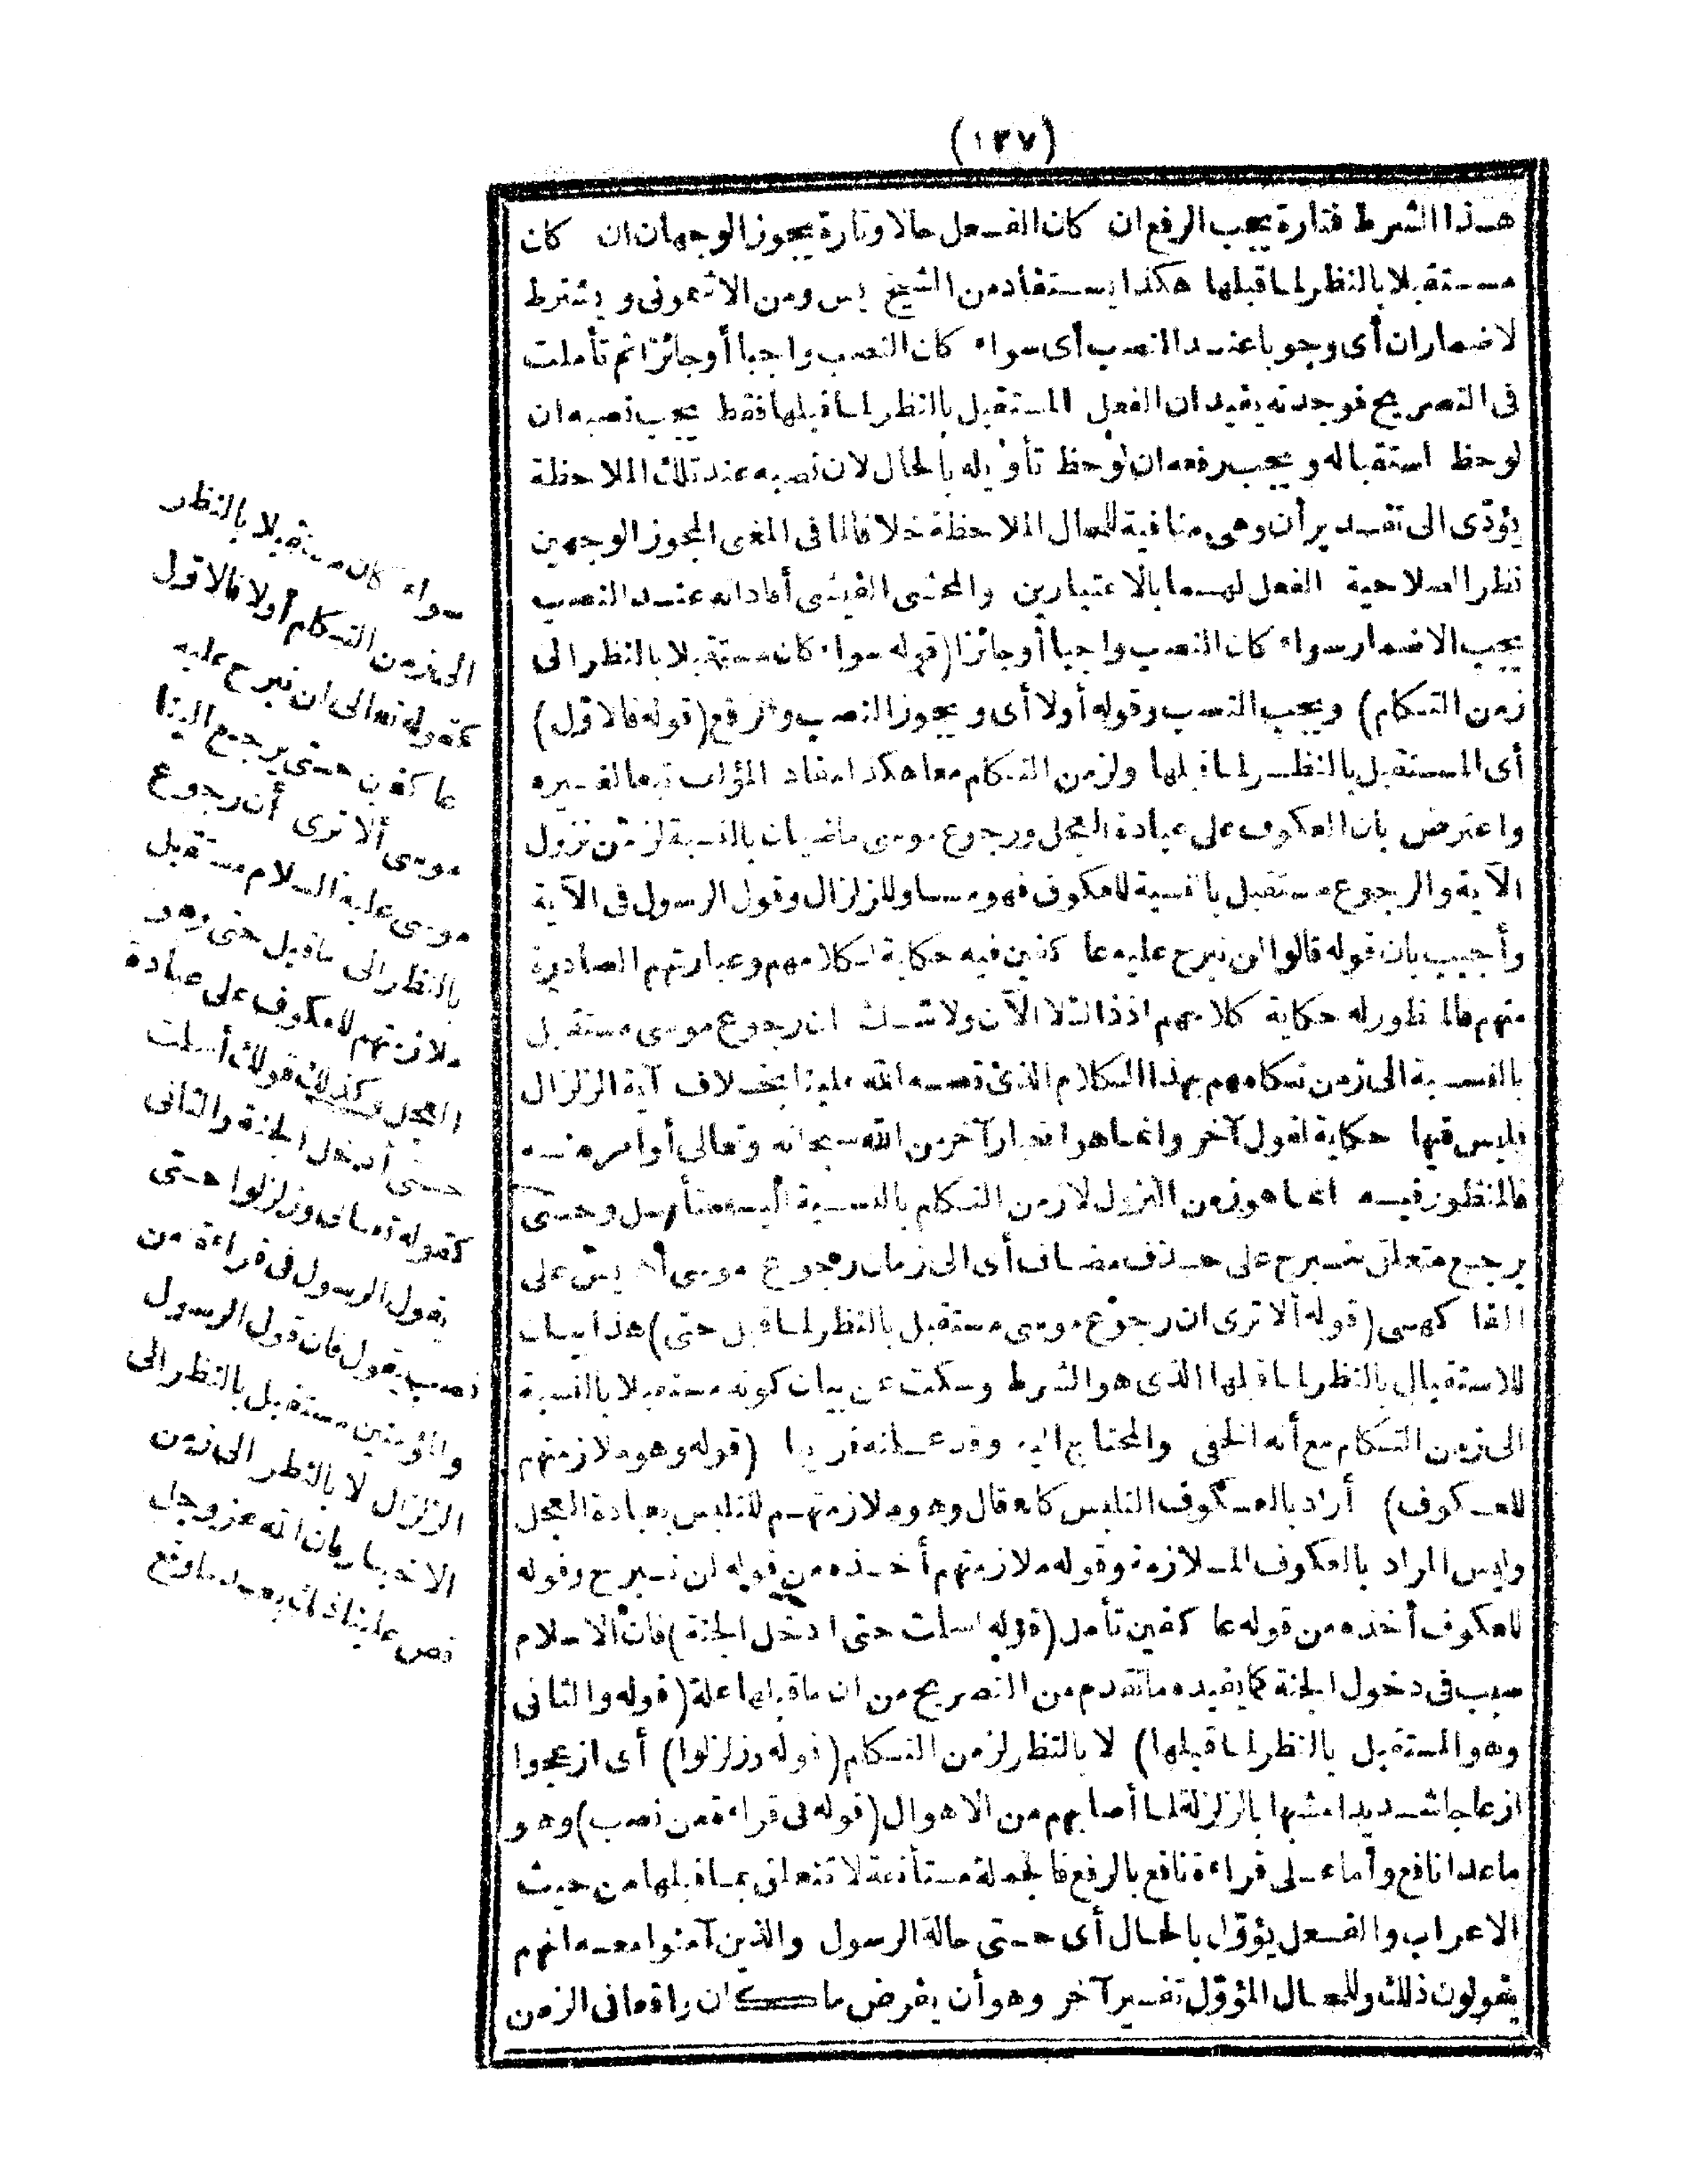 (١٣٧)
هذا الشرط فتارة يجب الرفع ان كان الفعل حالا وتارة يجوز الوجهان ان كان
مستقبلا بالنظر لما قبلها هكذا يستفاد من الشيخ يس ومن الاشمونى ويشترط
لاضمار ان أى وجوبا عند النصب أى سواء كان النصب واجبا أو جائزا ثم تأملت
فى التصريح فوجدته يفيد ان الفعل المستقبل بالنظر لما قبلها فقط يجب نصبه ان
لوحظ استقباله ويجب رفعه ان لوحظ تأويله بالحال لان نصبه عند تلك الملاحظة
يؤدى الى تقدير أن وهى منافية للحال الملاحظة خلافا لما فى المغنى المجوز الوجهين
نظرا لصلاحية الفعل لهما بالاعتبارين والمحشى الفيشى أفاد انه عند النصب
يجب الاضمار سواء كان النصب واجبا أو جائزا (قوله سواء كان مستقبلا بالنظر الى
زمن التكلم) ويجب النصب وقوله أولا أى ويجوز النصب والرفع (قوله فالاول)
أى المستقبل بالنظر لما قبلها ولزمن التكلم معا هكذا مفاد المؤلف تبعا لغيره
واعترض بان العكوف على عبادة العجل ورجوع موسى ماضيان بالنسبة لزمن نزول
الآية والرجوع مستقبل بالنسبة للعكوف فهو مساو للزلزال وقول الرسول فى الآية
وأجيب بان قوله قالوا لن نبرح عليه عا كفين فيه حكاية لكلامهم وعبارتهم الصادرة
منهم فالمنظور له حكاية كلامهم اذ ذاك لا الآن ولا شك ان رجوع موسى مستقبل
بالنسبة الى زمن تكلمهم بهذا الكلام الذى قصه الله علينا بخلاف آية الزلزال
فليس فيها حكاية لقول آخر وانما هو اخبار آخر من الله سبحانه وتعالى أوامر منه
فالمنظور فيه انما هو زمن النزول لا زمن التكلم بالنسبة اليه فتأمل وحتى
يرجع متعلق بنبرح على حذف مضاف أى الى زمان رجوع موسى اه يس على
الفا كهى (قوله ألا ترى ان رجوع موسى مستقبل بالنظر لما قبل حتى) هذا بيان
للاستقبال بالنظر لما قبلها الذى هو الشرط وسكت عن بيان كونه مستقبلا بالنسبة
الى زمن التكلم مع أنه الخفى والمحتاج اليه وقد علمته قريبا (قوله وهو ملازمتهم
للعكوف) أراد بالعكوف التلبس كانه قال وهو ملازمتهم للتلبس بعبادة العجل
وليس المراد بالعكوف الملازمة وقوله ملازمتهم أخذه من قوله لن نبرح وقوله
للعكوف أخذه من قوله عا كفين تأمل (قوله اسلمت حتى ادخل الجنة) فان الاسلام
سبب فى دخول الجنة كما يفيده ما تقدم من التصريح من ان ما قبلها علة (قوله والثانى
وهو المستقبل بالنظر لما قبلها) لا بالنظر لزمن التكلم (قوله وزلزلوا) أى ازعجوا
ازعاجا شديدا مشبها بالزلزلة لما أصابهم من الاهوال (قوله فى قراءة من نصب) وهو
ما عدا نافع وأما على قراءة نافع بالرفع فالجملة مستأنفة لا تتعلق بما قبلها من حيث
الاعراب والفعل يؤول بالحال أى حتى حالة الرسول والذين آمنوا معه انهم
يقولون ذلك وللحال المؤول تفسير آخر وهو أن يفرض ما كان واقعا فى الزمن
سواء كان مستقبلا بالنظر
الى زمن التكلم أولا فالاول
كقوله تعالى لن نبرح عليه
عا كفين حتى يرجع الينا
موسى ألا ترى أن رجوع
موسى عليه السلام مستقبل
بالنظر الى ما قبل حتى وهو
ملازمتهم للعكوف على عبادة
العجل وكذلك قولك أسلمت
حتى أدخل الجنة والثانى
كقوله تعالى وزلزلوا حتى
يقول الرسول فى قراءة من
نصب يقول فان قول الرسول
والمؤمنين مستقبل بالنظر الى
الزلزال لا بالنظر الى زمن
الاخبار فان الله عز وجل
قص علينا ذلك بعد ما وقع